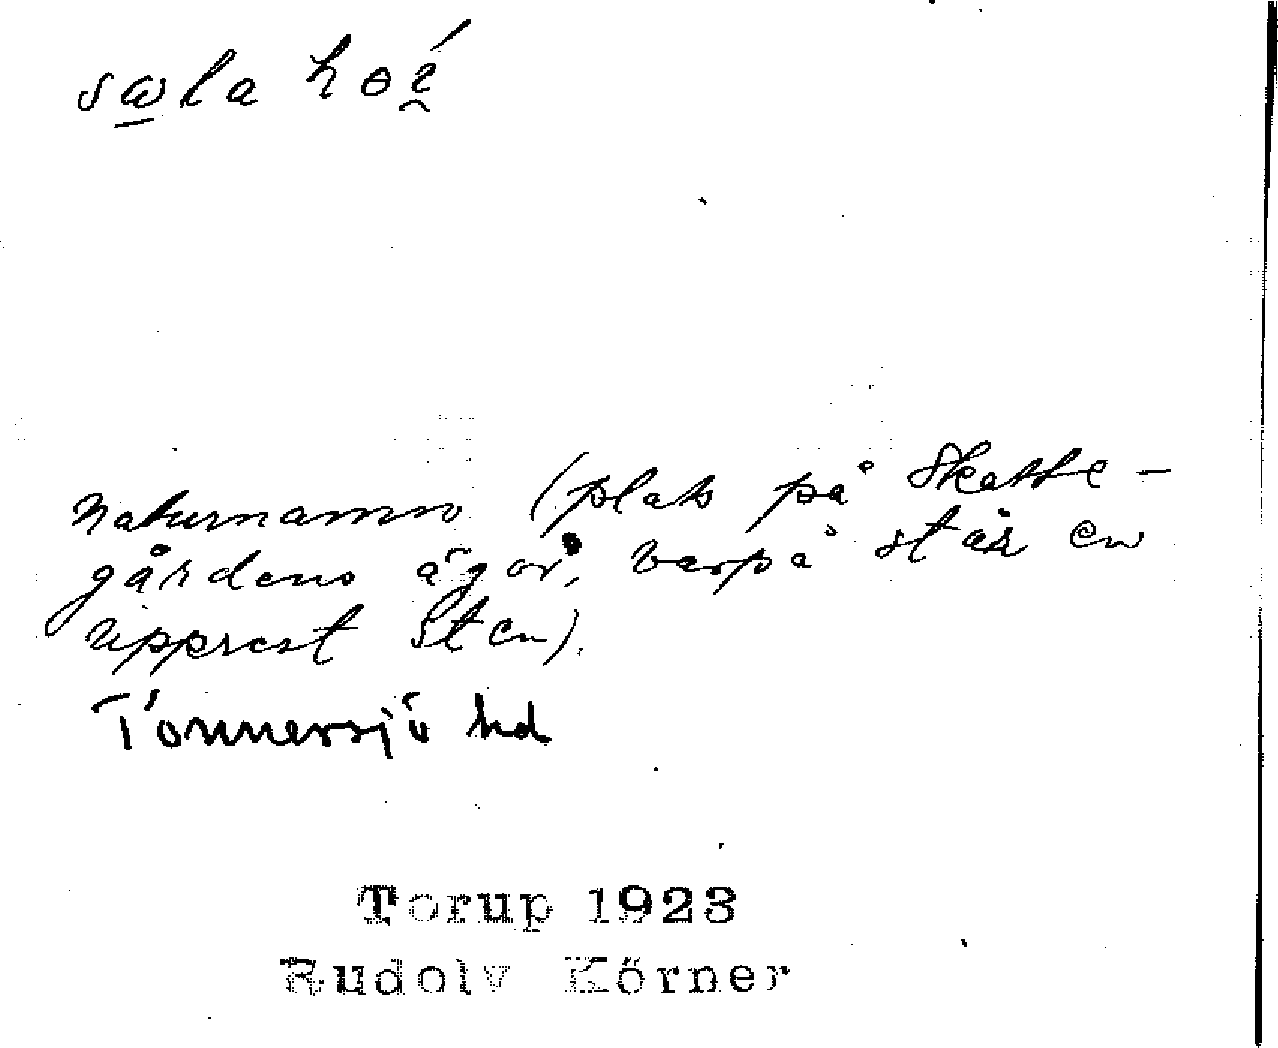 sæla hoé̯
Naturnamn (plats på Skatte-
gårdens ägor, varpå står en
upprest sten).
Tönnersjö hd
Torup 1923
Rudolv Körner